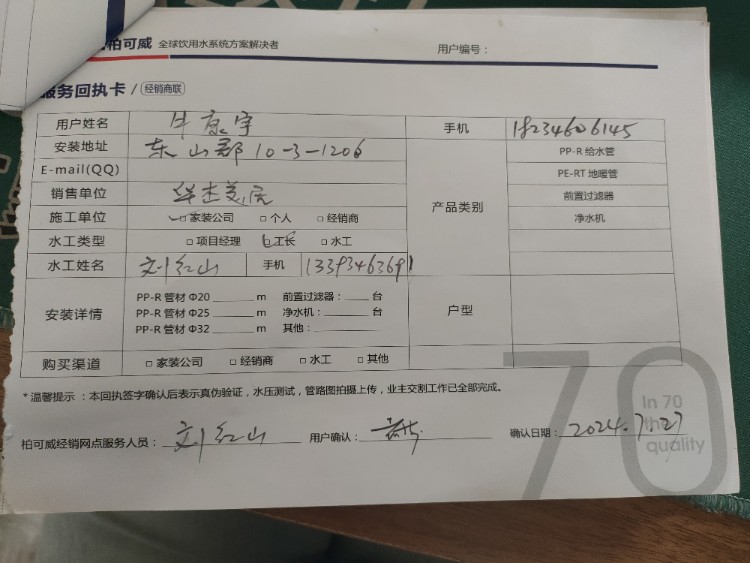 柏可威 全球饮用水系统方案解决者 用户编号：
服务回执卡 / 经销商联
用户姓名 牛 宇 手机 18234606145
安装地址 东山郡 10-3-1206 产品类别 PP-R 给水管
E-mail(QQ) PE-RT 地暖管
销售单位 华杰美居 前置过滤器
施工单位 ☑家装公司 □个人 □经销商 净水机
水工类型 □项目经理 ☑工长 □水工
水工姓名 刘红山 手机 13393463691
安装详情 PP-R 管材 Φ20 ______ m 前置过滤器：____ 台 户型
PP-R 管材 Φ25 ______ m 净水机：____ 台
PP-R 管材 Φ32 ______ m 其他：______
购买渠道 □家装公司 □经销商 □水工 □其他
*温馨提示：本回执签字确认后表示真伪验证，水压测试，管路图拍摄上传，业主交割工作已全部完成。
柏可威经销网点服务人员：刘红山 用户确认： 确认日期：2024.7.27
70
In 70
the
quality